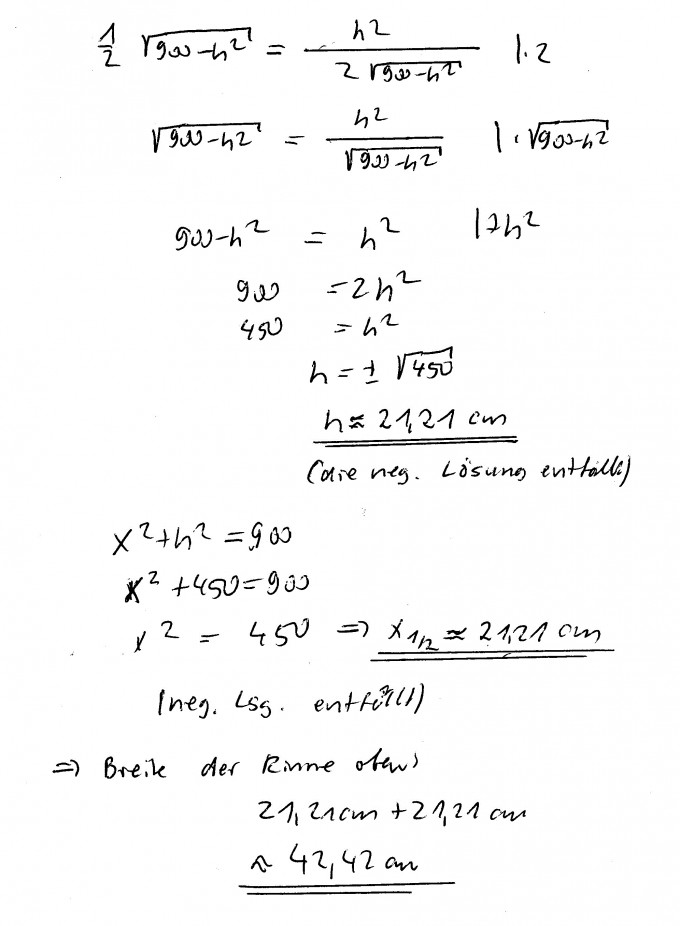 1/2 √(900-h²) = h² / (2√(900-h²)) |·2
√(900-h²) = h² / √(900-h²) |·√(900-h²)
900-h² = h² |+h²
900 = 2h²
450 = h²
h = ± √450
h ≈ 21,21 cm
(die neg. Lösung entfällt)
x²+h² = 900
x² +450 = 900
x² = 450 => x1/2 ≈ 21,21 cm
(neg. Lsg. entfällt)
=> Breite der Rinne oben:
21,21cm + 21,21 cm
≈ 42,42 cm